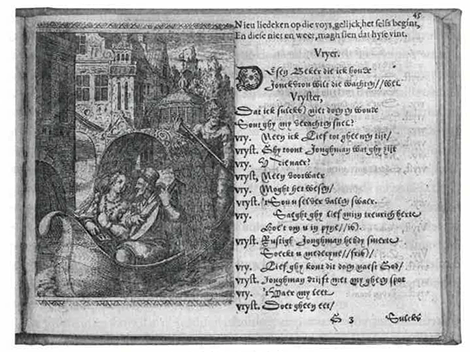 45
Nieu liedeken op die voys, gelijck het selfs begint,
En diese niet en weer, magh sien dat hyse vint.
Vryer.
Desen Beker die ick houde
Jonckvrou wilt die wachten//wel
Vryster,
Dat ick sulcks niet doen en woude
Sout ghy my verachten snel?
vry. Neen ick Lief tot gheener tijt/
vryst. Ghy toont Jonghman wat ghy zijt
vry.
vryst. Neen voorwaer
vry. Moght het wesen/
vryst. 't Sou u selver vallen swaer.
vry. Saeght ghy Lief mijn treurich herte
Hoe't om u in pyne//is.
vryst. Rustigh Jonghman hebdy smerte
Soeckt u medecyne//fris/
vry. Lief ghy kont die doen naest God/
vryst. Jonghman drijft met my gheen spot
vry. 't Waer my leet
vryst. Doet gheen eet/
G 3 Sulcks